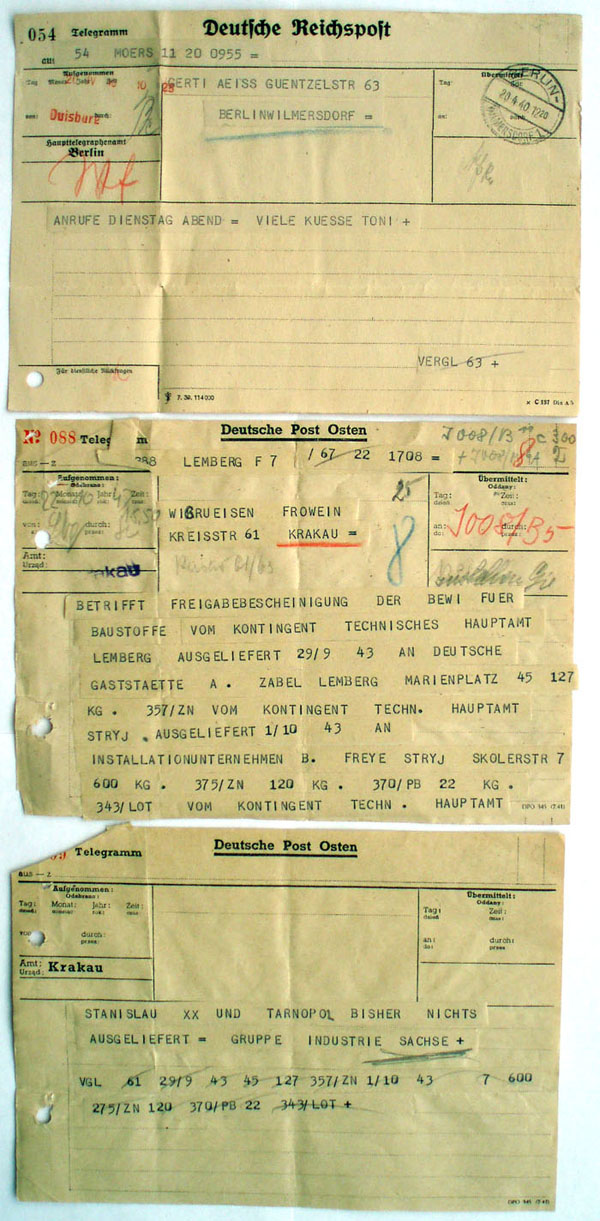 054 Telegramm Deutsche Reichspost
aus 54 MOERS 11 20 0955 =
Aufgenommen
Tag Monat Jahr Zeit
10 25
von: Duisburg durch:
Haupttelegraphenamt
Berlin
GERTI AEISS GUENTZELSTR 63
BERLINWILMERSDORF =
Übermittelt
Tag: Zeit:
an: durch:
BERLIN-
20.4.40.1220
WILMERSDORF 1
ANRUFE DIENSTAG ABEND = VIELE KUESSE TONI +
VERGL 63 +
Für dienstliche Rückfragen
7. 39. 114000
× C 187 Din A 5
№ 088 Telegramm Deutsche Post Osten
J008/B
aus — z 388 LEMBERG F 7 / 67 22 1708 =
8
Aufgenommen:
Odebrano:
Tag: Monat: Jahr: Zeit:
dzień: miesiąc: rok: czas:
22 10 43
von: durch:
przez:
Amt:
Urząd: Krakau
25
WIGRUEISEN FROWEIN
KREISSTR 61 KRAKAU =
8
Übermittelt:
Oddany:
Tag: Zeit:
dzień: czas:
an: durch:
do: przez:
J008/B5
BETRIFFT FREIGABEBESCHEINIGUNG DER BEWI FUER
BAUSTOFFE VOM KONTINGENT TECHNISCHES HAUPTAMT
LEMBERG AUSGELIEFERT 29/9 43 AN DEUTSCHE
GASTSTAETTE A . ZABEL LEMBERG MARIENPLATZ 45 127
KG . 357/ZN VOM KONTINGENT TECHN. HAUPTAMT
STRYJ . AUSGELIEFERT 1/10 43 AN
INSTALLATIONUNTERNEHMEN B. FREYE STRYJ SKOLERSTR 7
600 KG . 375/ZN 120 KG . 370/PB 22 KG .
343/LOT VOM KONTINGENT TECHN . HAUPTAMT
DPO 145 (7 41)
Telegramm Deutsche Post Osten
aus — z
Aufgenommen:
Odebrano:
Tag: Monat: Jahr: Zeit:
dzień: miesiąc: rok: czas:
von: durch:
przez:
Amt:
Urząd: Krakau
Übermittelt:
Oddany:
Tag: Zeit:
dzień: czas:
an: durch:
do: przez:
STANISLAU XX UND TARNOPOL BISHER NICHTS
AUSGELIEFERT = GRUPPE INDUSTRIE SACHSE +
VGL 61 29/9 43 45 127 357/ZN 1/10 43 7 600
275/ZN 120 370/PB 22 343/LOT +
DPO 145 (7 41)